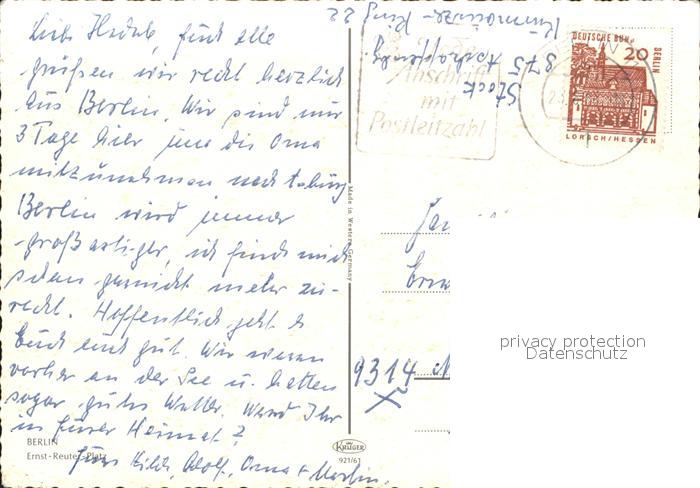 Euch alle
grüßen wir recht herzlich
aus Berlin. Wir sind nur
3 Tage hier um die Oma
mitzunehmen nach
Berlin wird immer
großartiger, ich finde mich
schon garnicht mehr zu-
recht. Hoffentlich geht es
Euch auch gut. Wir waren
vorher an der See u. hatten
sogar gutes Wetter. Ward Ihr
in Eurer Heimat?
Eure Hilde, Adolf, Oma + Martin.
BERLIN
Ernst-Reuter-Platz
Made in Western Germany
KRÜGER
921/61
Stock
875 Aschaffenburg
Ring 22
Abschrift
mit
Postleitzahl
DEUTSCHE BUN
BERLIN
20
LORSCH/HESSEN
9314
privacy protection
Datenschutz